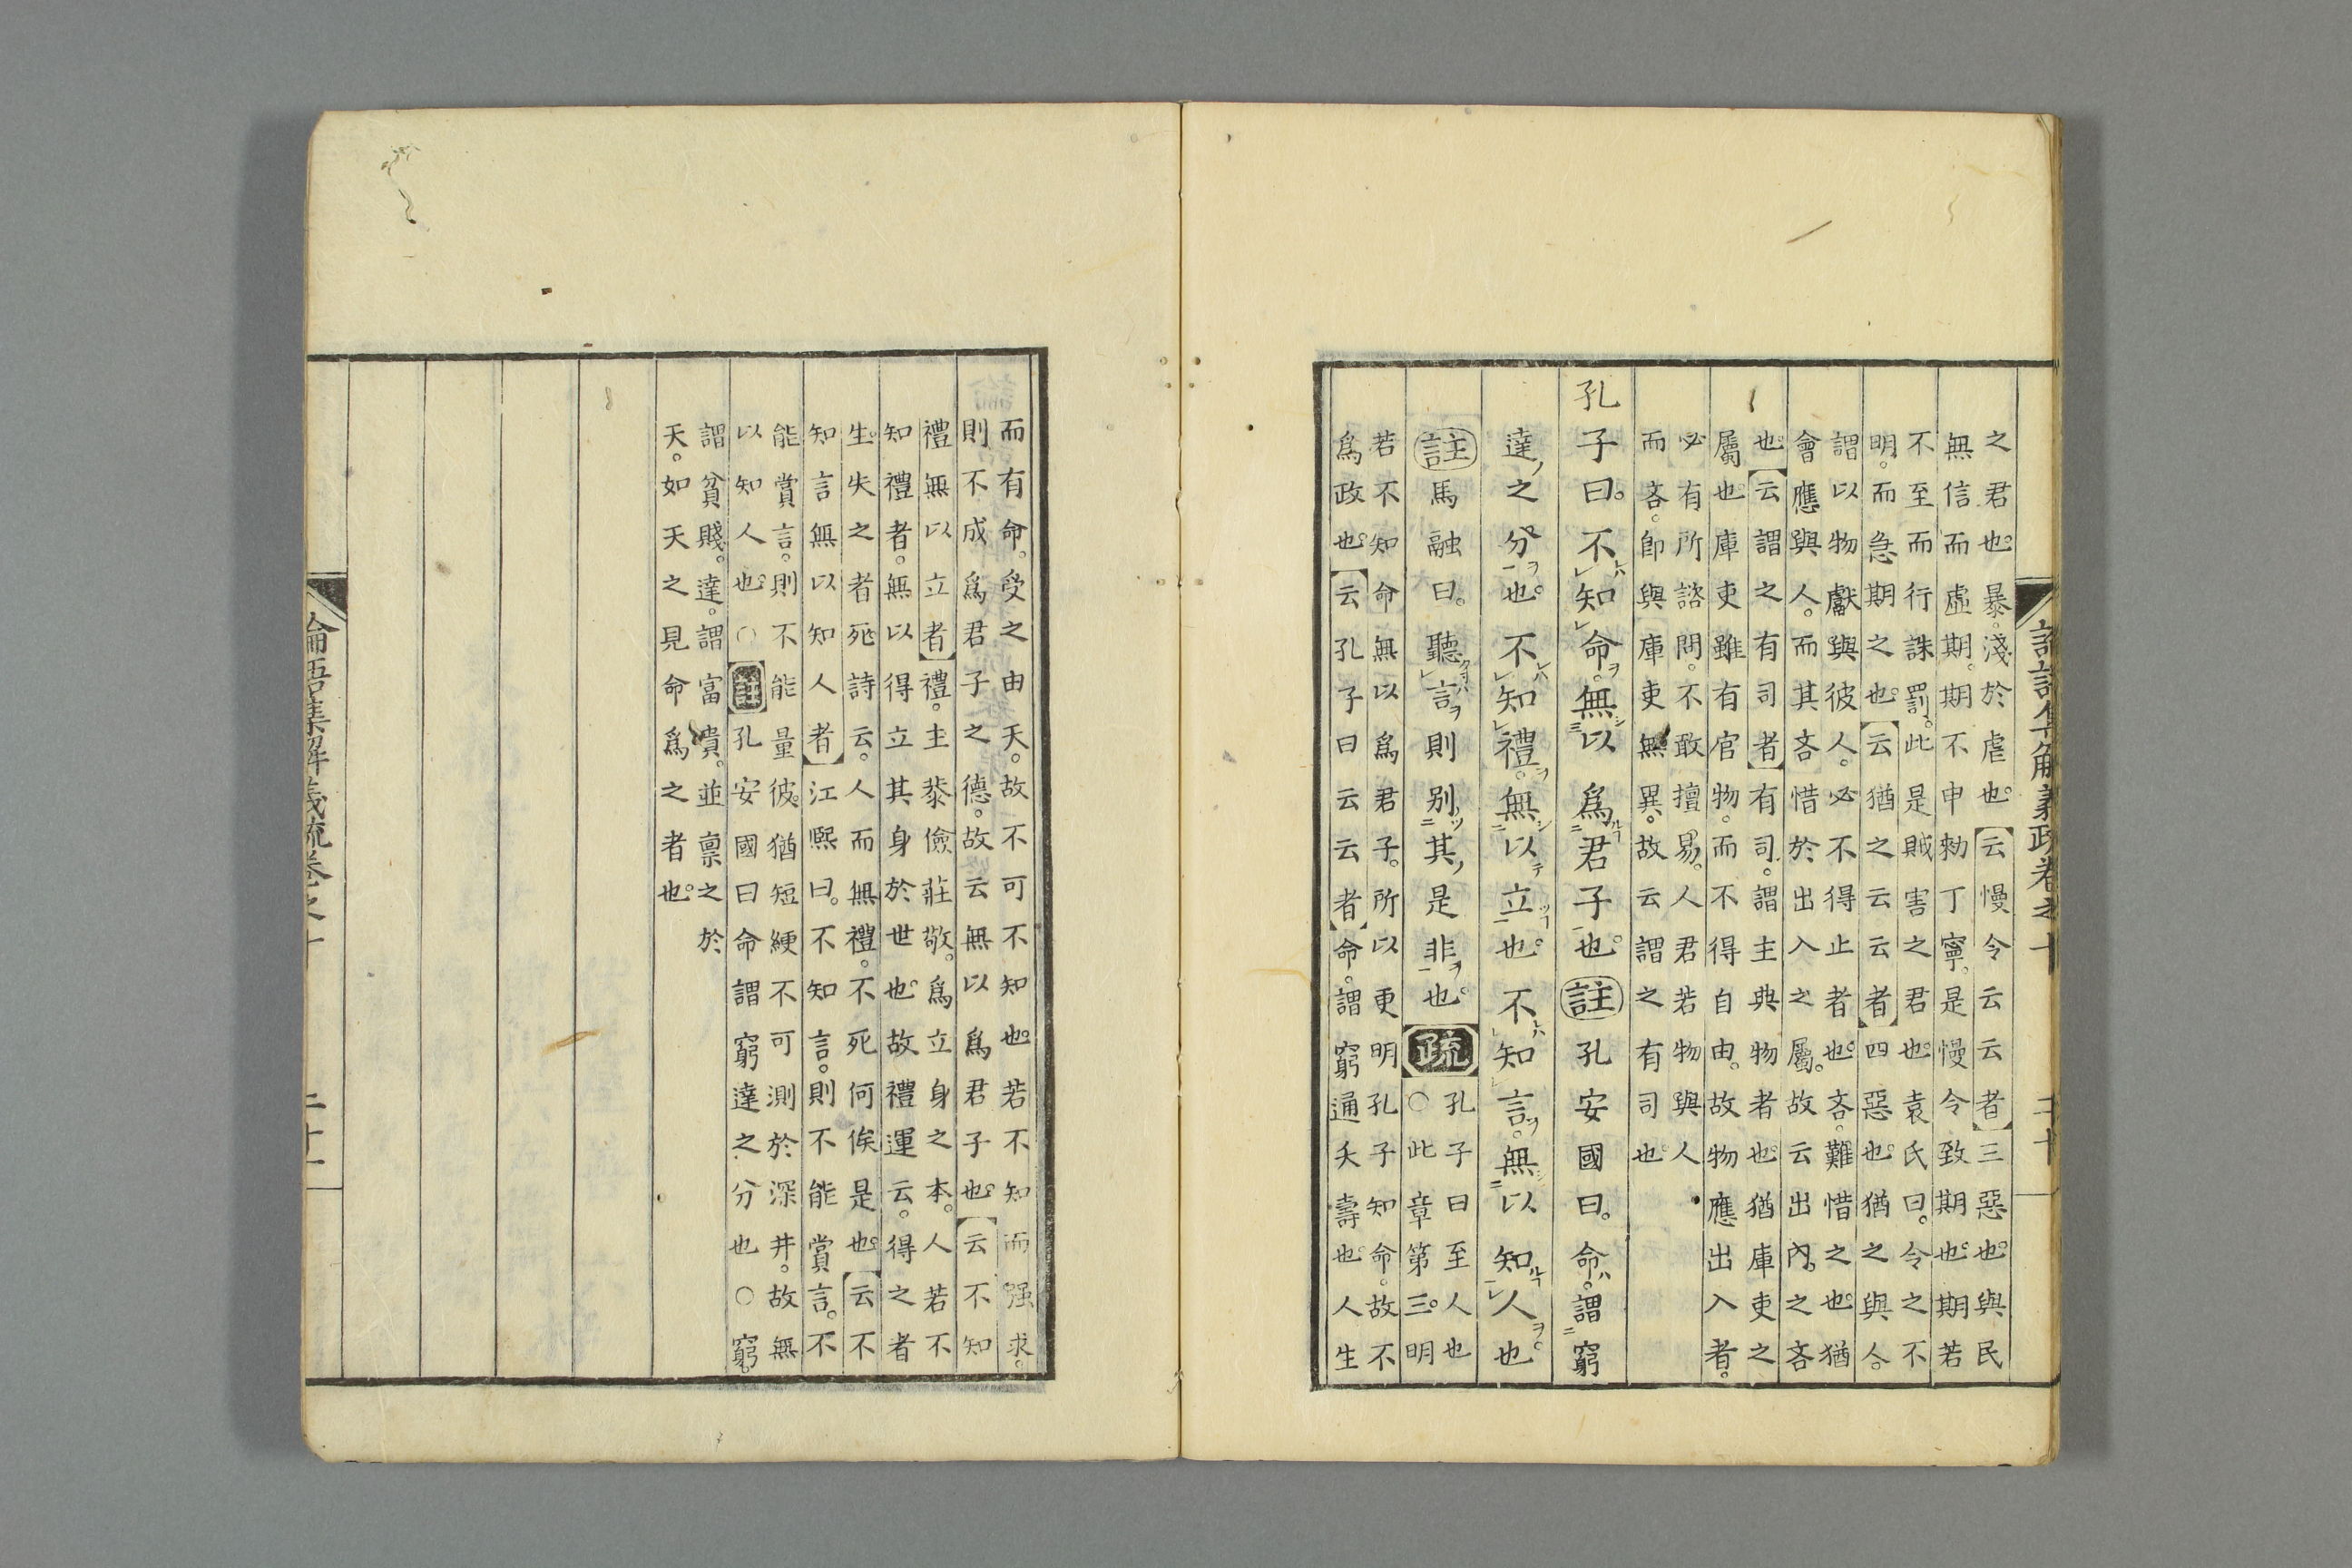 之君也。暴。淺於虐也。【云慢令云云者】三惡也。與民
無信而虛期。期不申勅丁寧。是慢令致期也。期若
不至而行誅罰。此是賊害之君也。袁氏曰。令之不
明。而急期之也。【云猶之云云者】四惡也。猶之與人。
謂以物獻與彼人。必不得止者也。吝。難惜之也。猶
會應與人。而其吝惜於出入之屬。故云出內。之吝
也。【云謂之有司者】有司。謂主典物者也。猶庫吏之
屬也。庫吏雖有官物。而不得自由。故物應出入者。
必有所諮問。不敢擅易。人君若物與人
而吝。卽與庫吏無異。故云謂之有司也
孔子曰。不知命。無以爲君子也。註孔安國曰。命。謂窮
達之分也。不知禮。無以立也。不知言。無以知人也
註馬融曰。聽言則別其是非也。疏孔子曰至人也
○此章第三。明
若不知命無以爲君子。所以更明孔子知命。故不
爲政也。【云孔子曰云云者】命。謂窮通夭壽也。人生
而有命。受之由天。故不可不知也。若不知而强求。
則不成爲君子之德。故云無以爲君子也。【云不知
禮無以立者】禮。主恭儉莊敬。爲立身之本。人若不
知禮者。無以得立其身於世也。故禮運云。得之者
生。失之者死。詩云。人而無禮。不死何俟是也。【云不
知言無以知人者】江熙曰。不知言。則不能賞言。不
能賞言。則不能量彼。猶短綆不可測於深井。故無
以知人也。○註孔安國曰命謂窮達之分也○窮。
謂貧賤。達。謂富貴。並稟之於
天。如天之見命爲之者也。
論語集解義疏卷之十
二十一